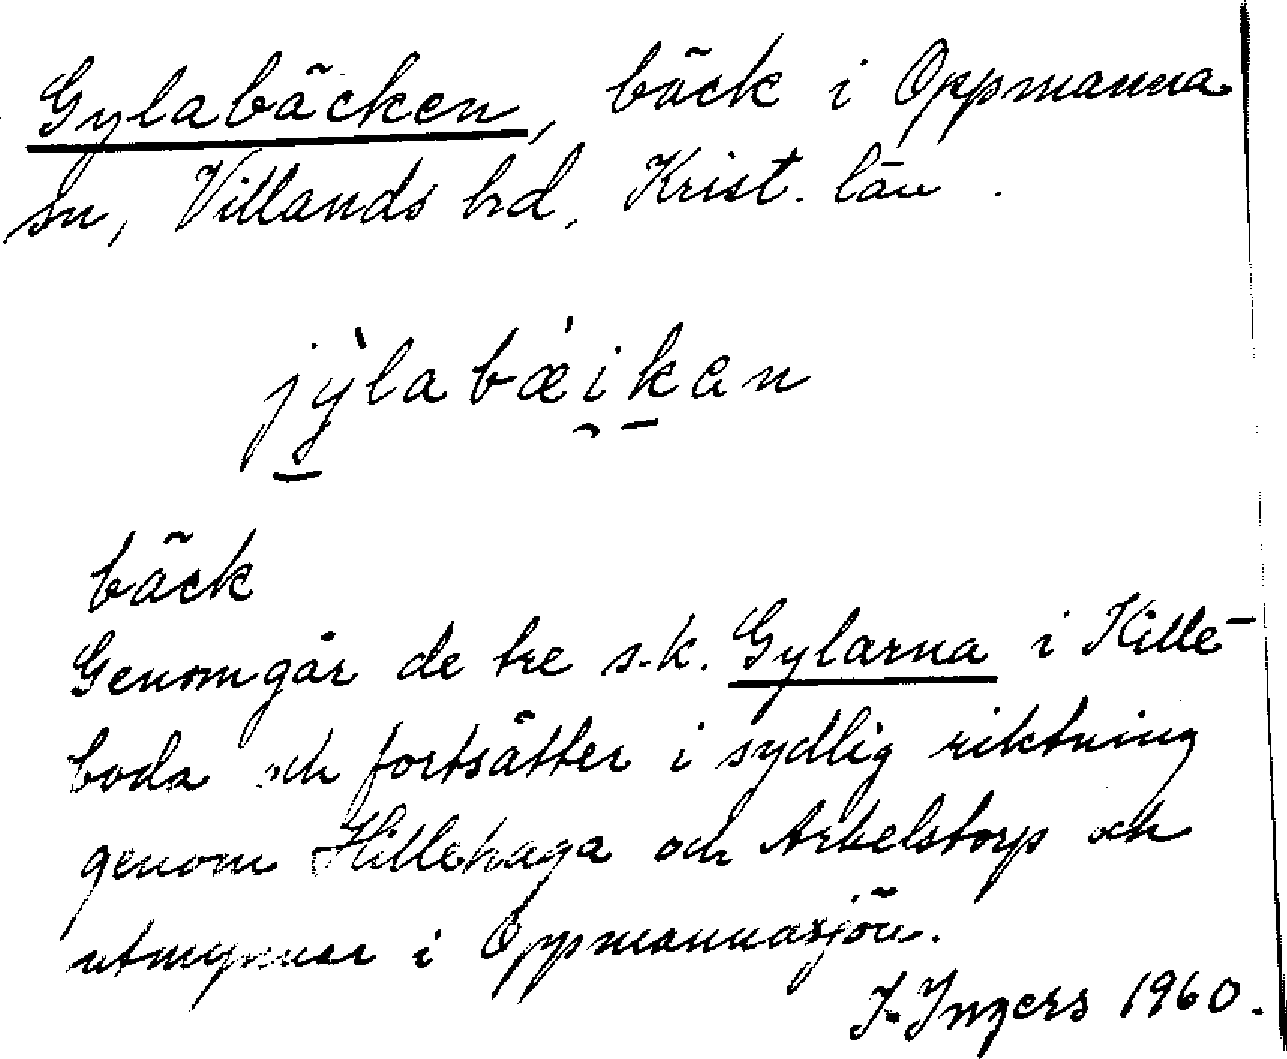 Gylabäcken, bäck i Oppmanna
sn, Villands hd, Krist. län.
jỳlabæ̀ikan
bäck
Genomgår de tre s.k. Gylarna i Hille-
boda och fortsätter i sydlig riktning
genom Hillehaga och Arkelstorp och
utmynnar i Oppmannasjön.
I. Ingers 1960.